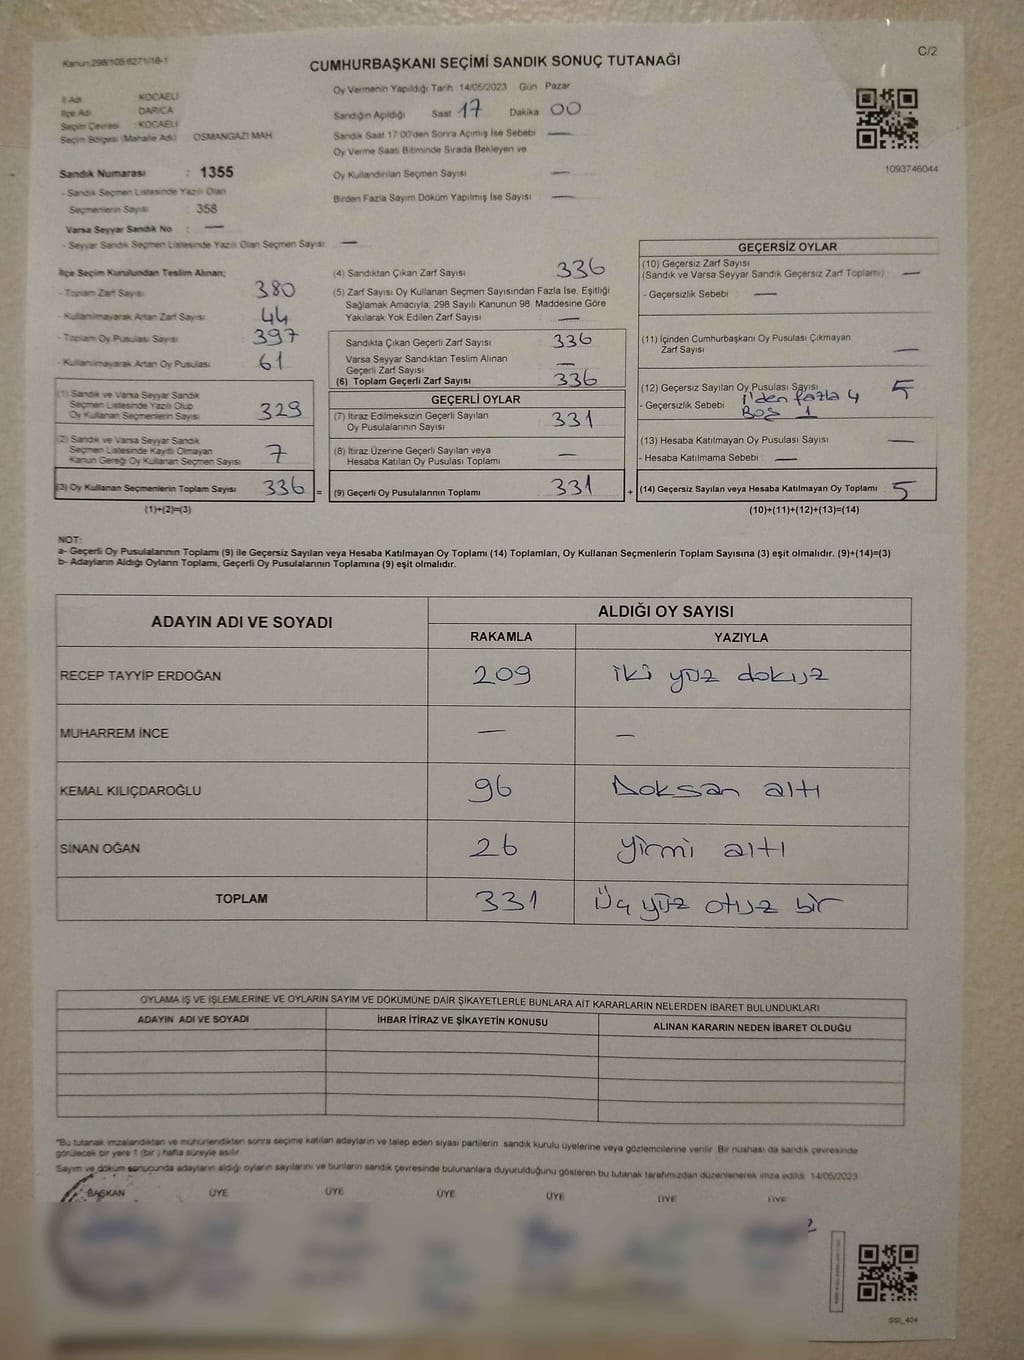 Kanun:298/105,6271/16-1
C/2
CUMHURBAŞKANI SEÇİMİ SANDIK SONUÇ TUTANAĞI
İl Adı KOCAELİ
İlçe Adı DARICA
Seçim Çevresi :KOCAELİ
Seçim Bölgesi (Mahalle Adı) OSMANGAZİ MAH.
Sandık Numarası : 1355
- Sandık Seçmen Listesinde Yazılı Olan
Seçmenlerin Sayısı : 358
Varsa Seyyar Sandık No : —
- Seyyar Sandık Seçmen Listesinde Yazılı Olan Seçmen Sayısı: —
Oy Vermenin Yapıldığı Tarih 14/05/2023 Gün Pazar
Sandığın Açıldığı Saat 17 Dakika 00
Sandık Saat 17:00'den Sonra Açımış İse Sebebi —
Oy Verme Saati Bitiminde Sırada Bekleyen ve
Oy Kullandırılan Seçmen Sayısı —
Birden Fazla Sayım Döküm Yapılmış İse Sayısı —
1093746044
İlçe Seçim Kurulundan Teslim Alınan;
- Toplam Zarf Sayısı 380
- Kullanılmayarak Artan Zarf Sayısı 44
- Toplam Oy Pusulası Sayısı 397
- Kullanılmayarak Artan Oy Pusulası 61
(1) Sandık ve Varsa Seyyar Sandık
Seçmen Listesinde Yazılı Olup
Oy Kullanan Seçmenlerin Sayısı 329
(2) Sandık ve Varsa Seyyar Sandık
Seçmen Listesinde Kayıtlı Olmayan
Kanun Gereği Oy Kullanan Seçmen Sayısı 7
(3) Oy Kullanan Seçmenlerin Toplam Sayısı 336 =
(1)+(2)=(3)
(4) Sandıktan Çıkan Zarf Sayısı 336
(5) Zarf Sayısı Oy Kullanan Seçmen Sayısından Fazla İse, Eşitliği
Sağlamak Amacıyla, 298 Sayılı Kanunun 98. Maddesine Göre
Yakılarak Yok Edilen Zarf Sayısı —
Sandıkta Çıkan Geçerli Zarf Sayısı 336
Varsa Seyyar Sandıktan Teslim Alınan
Geçerli Zarf Sayısı —
(6) Toplam Geçerli Zarf Sayısı 336
GEÇERLİ OYLAR
(7) İtiraz Edilmeksizin Geçerli Sayılan
Oy Pusulalarının Sayısı 331
(8) İtiraz Üzerine Geçerli Sayılan veya
Hesaba Katılan Oy Pusulası Toplamı —
(9) Geçerli Oy Pusulalarının Toplamı 331 +
GEÇERSİZ OYLAR
(10) Geçersiz Zarf Sayısı
(Sandık ve Varsa Seyyar Sandık Geçersiz Zarf Toplamı) —
- Geçersizlik Sebebi —
(11) İçinden Cumhurbaşkanı Oy Pusulası Çıkmayan
Zarf Sayısı —
(12) Geçersiz Sayılan Oy Pusulası Sayısı 5
- Geçersizlik Sebebi 1'den fazla 4
Boş 1
(13) Hesaba Katılmayan Oy Pusulası Sayısı —
- Hesaba Katılmama Sebebi —
(14) Geçersiz Sayılan veya Hesaba Katılmayan Oy Toplamı 5
(10)+(11)+(12)+(13)=(14)
NOT:
a- Geçerli Oy Pusulalarının Toplamı (9) ile Geçersiz Sayılan veya Hesaba Katılmayan Oy Toplamı (14) Toplamları, Oy Kullanan Seçmenlerin Toplam Sayısına (3) eşit olmalıdır. (9)+(14)=(3)
b- Adayların Aldığı Oyların Toplamı, Geçerli Oy Pusulalarının Toplamına (9) eşit olmalıdır.
ADAYIN ADI VE SOYADI ALDIĞI OY SAYISI
RAKAMLA YAZIYLA
RECEP TAYYİP ERDOĞAN 209 iki yüz dokuz
MUHARREM İNCE — —
KEMAL KILIÇDAROĞLU 96 Doksan altı
SİNAN OĞAN 26 yirmi altı
TOPLAM 331 Üç yüz otuz bir
OYLAMA İŞ VE İŞLEMLERİNE VE OYLARIN SAYIM VE DÖKÜMÜNE DAİR ŞİKAYETLERLE BUNLARA AİT KARARLARIN NELERDEN İBARET BULUNDUKLARI
ADAYIN ADI VE SOYADI İHBAR İTİRAZ VE ŞİKAYETİN KONUSU ALINAN KARARIN NEDEN İBARET OLDUĞU
*Bu tutanak imzalandıktan ve mühürlendikten sonra seçime katılan adayların ve talep eden siyasi partilerin sandık kurulu üyelerine veya gözlemcilerine verilir. Bir nüshası da sandık çevresinde
görülecek bir yere 1 (bir) hafta süreyle asılır.
Sayım ve döküm sonucunda adayların aldığı oyların sayılarını ve bunların sandık çevresinde bulunanlara duyurulduğunu gösteren bu tutanak tarafımızdan düzenlenerek imza edildi. 14/05/2023
BAŞKAN ÜYE ÜYE ÜYE ÜYE ÜYE ÜYE
SSI_404